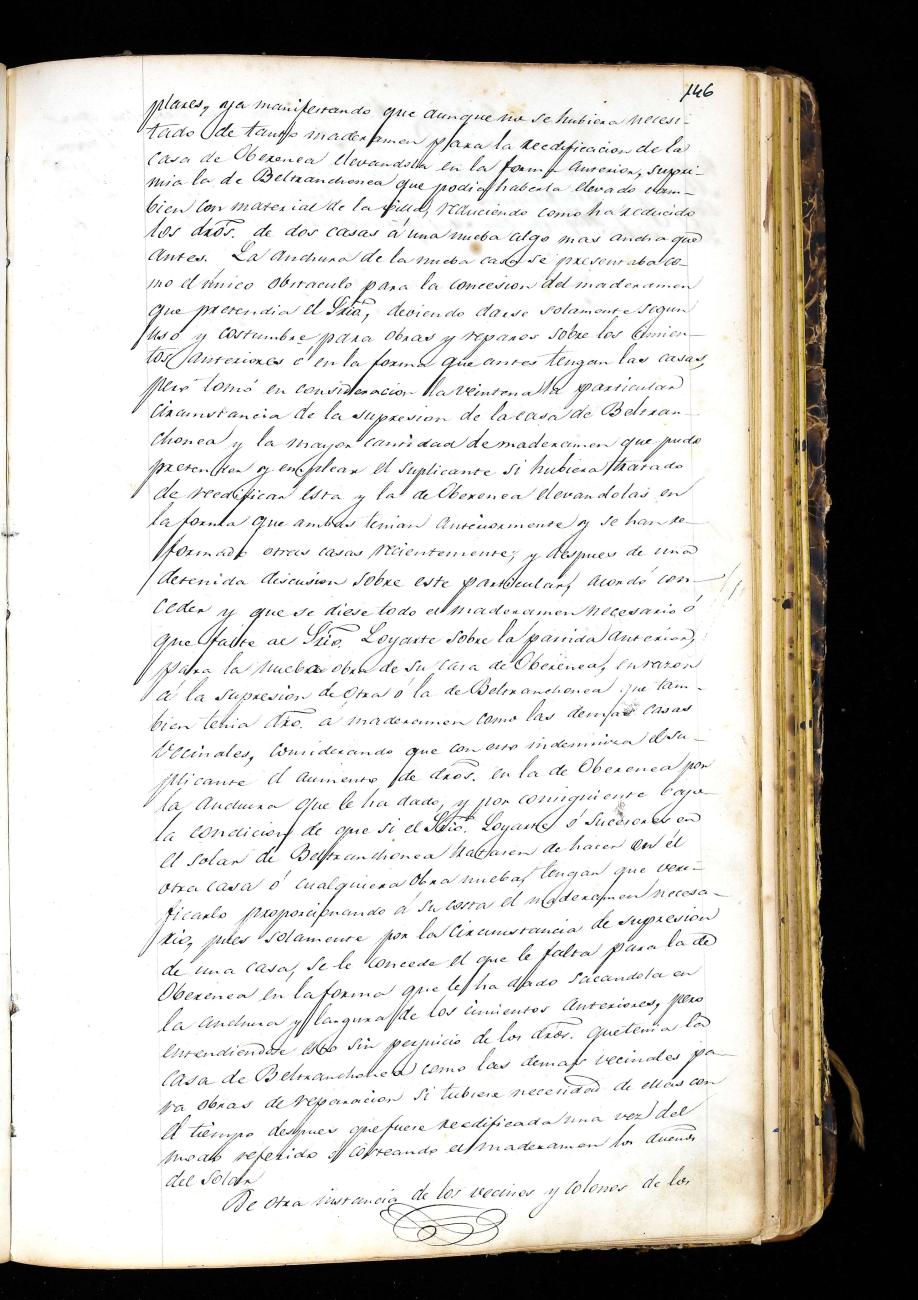 146
plares, y ya manifestando que aunque no se hubiera necesi-
tado de tanto maderamen para la reedificacion de la
casa de Oberenea elevandola en la forma anterior, supri-
mia la de Beltranchonea que podia haberla elevado tam-
bien con material de la villa, reduciendo como ha reducido
los dros. de dos casas á una nueba algo mas ancha que
antes. La anchura de la nueba casa se presentaba co-
mo el único obstaculo para la concesion del maderamen
que pretendia el Srio, deviendo darse solamente segun
uso y costumbre para obras y reparos sobre los cimien-
tos anteriores ó en la forma que antes tengan las casas,
pero tomó en consideracion la veintena la particular
circunstancia de la supresion de la casa de Beltran-
chonea y la mayor cantidad de maderamen que pudo
pretender y emplear el suplicante si hubiera tratado
de reedificar esta y la de Oberenea elevandolas en
la forma que ambas tenian anteriormente y se han re-
formado otras casas recientemente; y despues de una
detenida discusion sobre este particular, acordó con-
ceder y que se diese todo el maderamen necesario ó
que falte al Srio. Loyarte sobre la partida anterior,
para la nueba obra de su casa de Oberenea, en razon
á la supresion de otra ó la de Beltranchonea que tam-
bien tenia dro. á maderamen como las demas casas
vecinales, considerando que con esto indemniza el su-
plicante el aumento de dros. en la de Oberenea por
la anchura que le ha dado, y por consiguiente bajo
la condicion de que si el Srio. Loyarte ó sucesores en
el solar de Beltranchonea tratasen de hacer en él
otra casa ó cualquiera obra nueba, tengan que veri-
ficarlo proporcionando á su costa el maderamen necesa-
rio, pues solamente por la circunstancia de supresion
de una casa, se le concede el que le falta para la de
Oberenea en la forma que le ha dado sacandola en
la anchura y largura de los cimientos anteriores, pero
entendiendose esto sin perjuicio de los dros. que tenia la
casa de Beltranchonea como las demas vecinales pa-
ra obras de reparacion si tubiere necesidad de ellas con
el tiempo despues que fuere reedificada una vez del
modo referido ó costeando el maderamen los dueños
del solar
De otra instancia de los vecinos y colonos de los